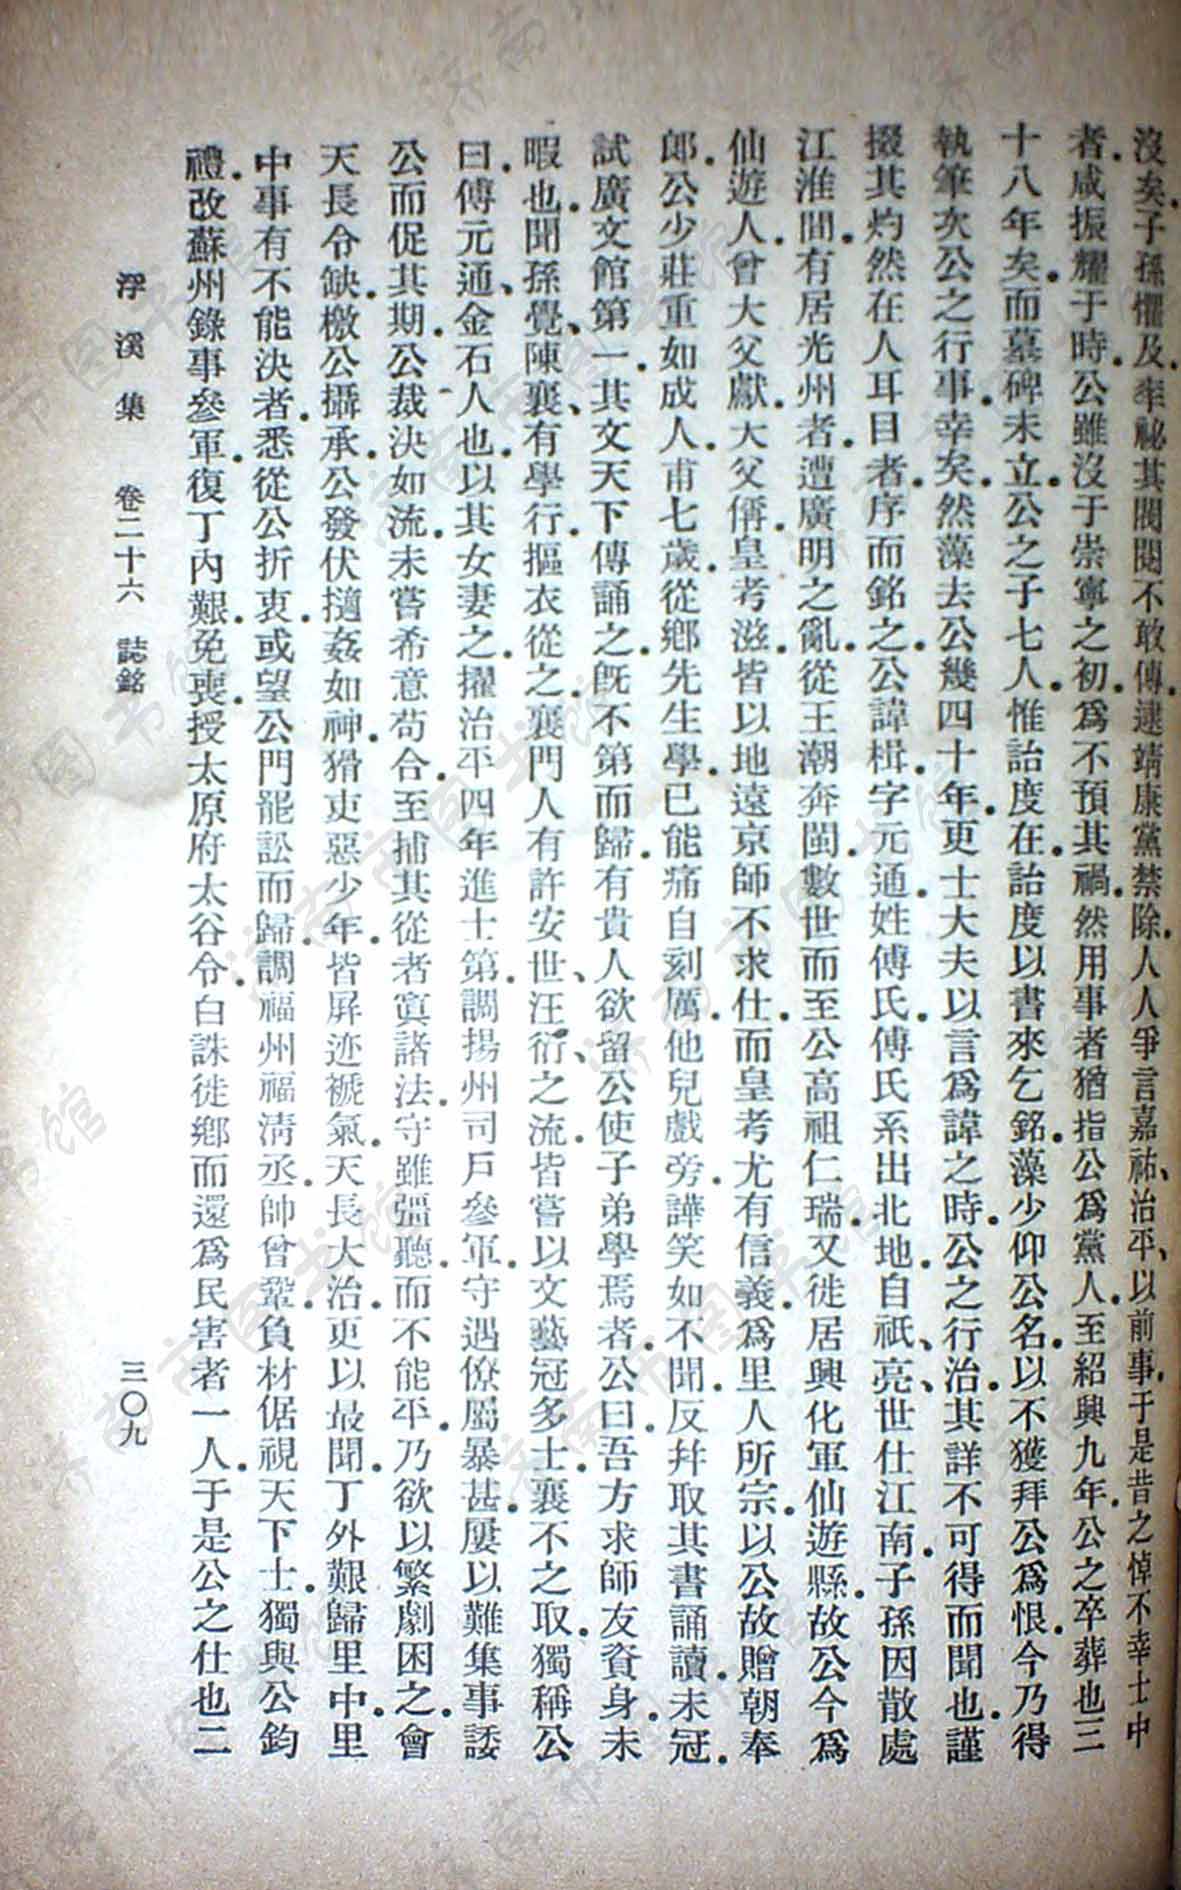 沒矣.子孫懼及.率祕其閥閱不敢傳.逮靖康黨禁除.人人爭言嘉祐、治平、以前事.于是昔之悼不幸士中
者.咸振耀于時.公雖沒于崇寧之初.爲不預其禍.然用事者猶指公爲黨人.至紹興九年.公之卒葬也三
十八年矣.而墓碑未立.公之子七人.惟詒度在.詒度以書來乞銘.藻少仰公名.以不獲拜公爲恨.今乃得
執筆次公之行事.幸矣.然藻去公幾四十年.更士大夫以言爲諱之時.公之行治.其詳不可得而聞也.謹
掇其灼然在人耳目者.序而銘之.公諱楫.字元通.姓傅氏.傅氏系出北地.自祇、亮、世仕江南.子孫因散處
江淮間.有居光州者.遭廣明之亂.從王潮奔閩.數世而至公高祖仁瑞.又徙居興化軍仙遊縣.故公今爲
仙遊人.曾大父獻.大父偁.皇考滋.皆以地遠京師不求仕.而皇考尤有信義.爲里人所宗.以公故贈朝奉
郎.公少莊重如成人.甫七歲.從鄉先生學.已能痛自刻厲.他兒戲旁.譁笑如不聞.反并取其書誦讀.未冠.
試廣文館第一.其文天下傳誦之.旣不第而歸.有貴人欲留公使子弟學焉者.公曰.吾方求師友資身.未
暇也.聞孫覺、陳襄、有學行.摳衣從之.襄門人有許安世、汪衍、之流.皆嘗以文藝冠多士.襄不之取.獨稱公
曰.傅元通、金石人也.以其女妻之.擢治平四年進士第.調揚州司戶參軍.守遇僚屬暴甚.屢以難集事諉
公而促其期.公裁決如流.未嘗希意苟合.至捕其從者寘諸法.守雖彊聽.而不能平.乃欲以繁劇困之.會
天長令缺.檄公攝承.公發伏擿姦如神.猾吏惡少年.皆屏迹褫氣.天長大治.吏以最聞.丁外艱歸里中.里
中事有不能決者.悉從公折衷.或望公門罷訟而歸.調福州福淸丞.帥曾鞏.負材倨視天下士.獨與公鈞
禮.改蘇州錄事參軍.復丁內艱.免喪.授太原府太谷令.白誅徙鄉而還爲民害者一人.于是公之仕也二
浮溪集 卷二十六 誌銘 三〇九